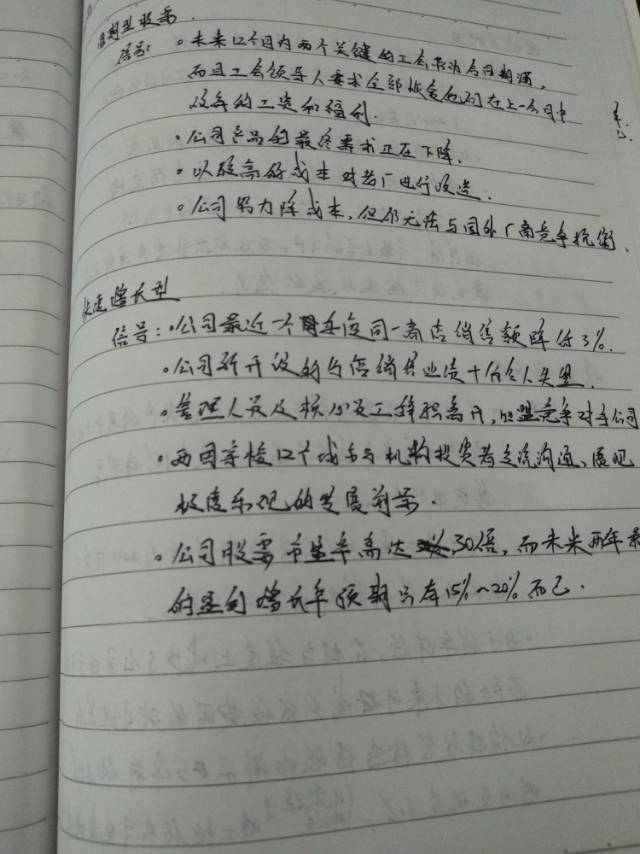 周期型股票
信号:。未来12个月内两个关键的工会劳动合同期满,
而且工会领导人要求全部恢复他们在上一合同中
放弃的工资和福利.
。公司产品的最终需求正在下降.
。以较高的成本对老厂进行改造.
。公司努力降成本,但仍无法与国外厂商竞争抗衡.
快速增长型
信号:。公司最近一个季度同一商店销售额降低3%.
。公司新开设的分店销售业绩十分令人失望.
。管理人员及核心员工辞职离开,加盟竞争对手公司
。两周等 12个城市与机构投资者交流沟通,展现
极度乐观的发展前景.
。公司股票市盈率高达30倍,而未来两年
的盈利增长率预期只有15%~20%而已.